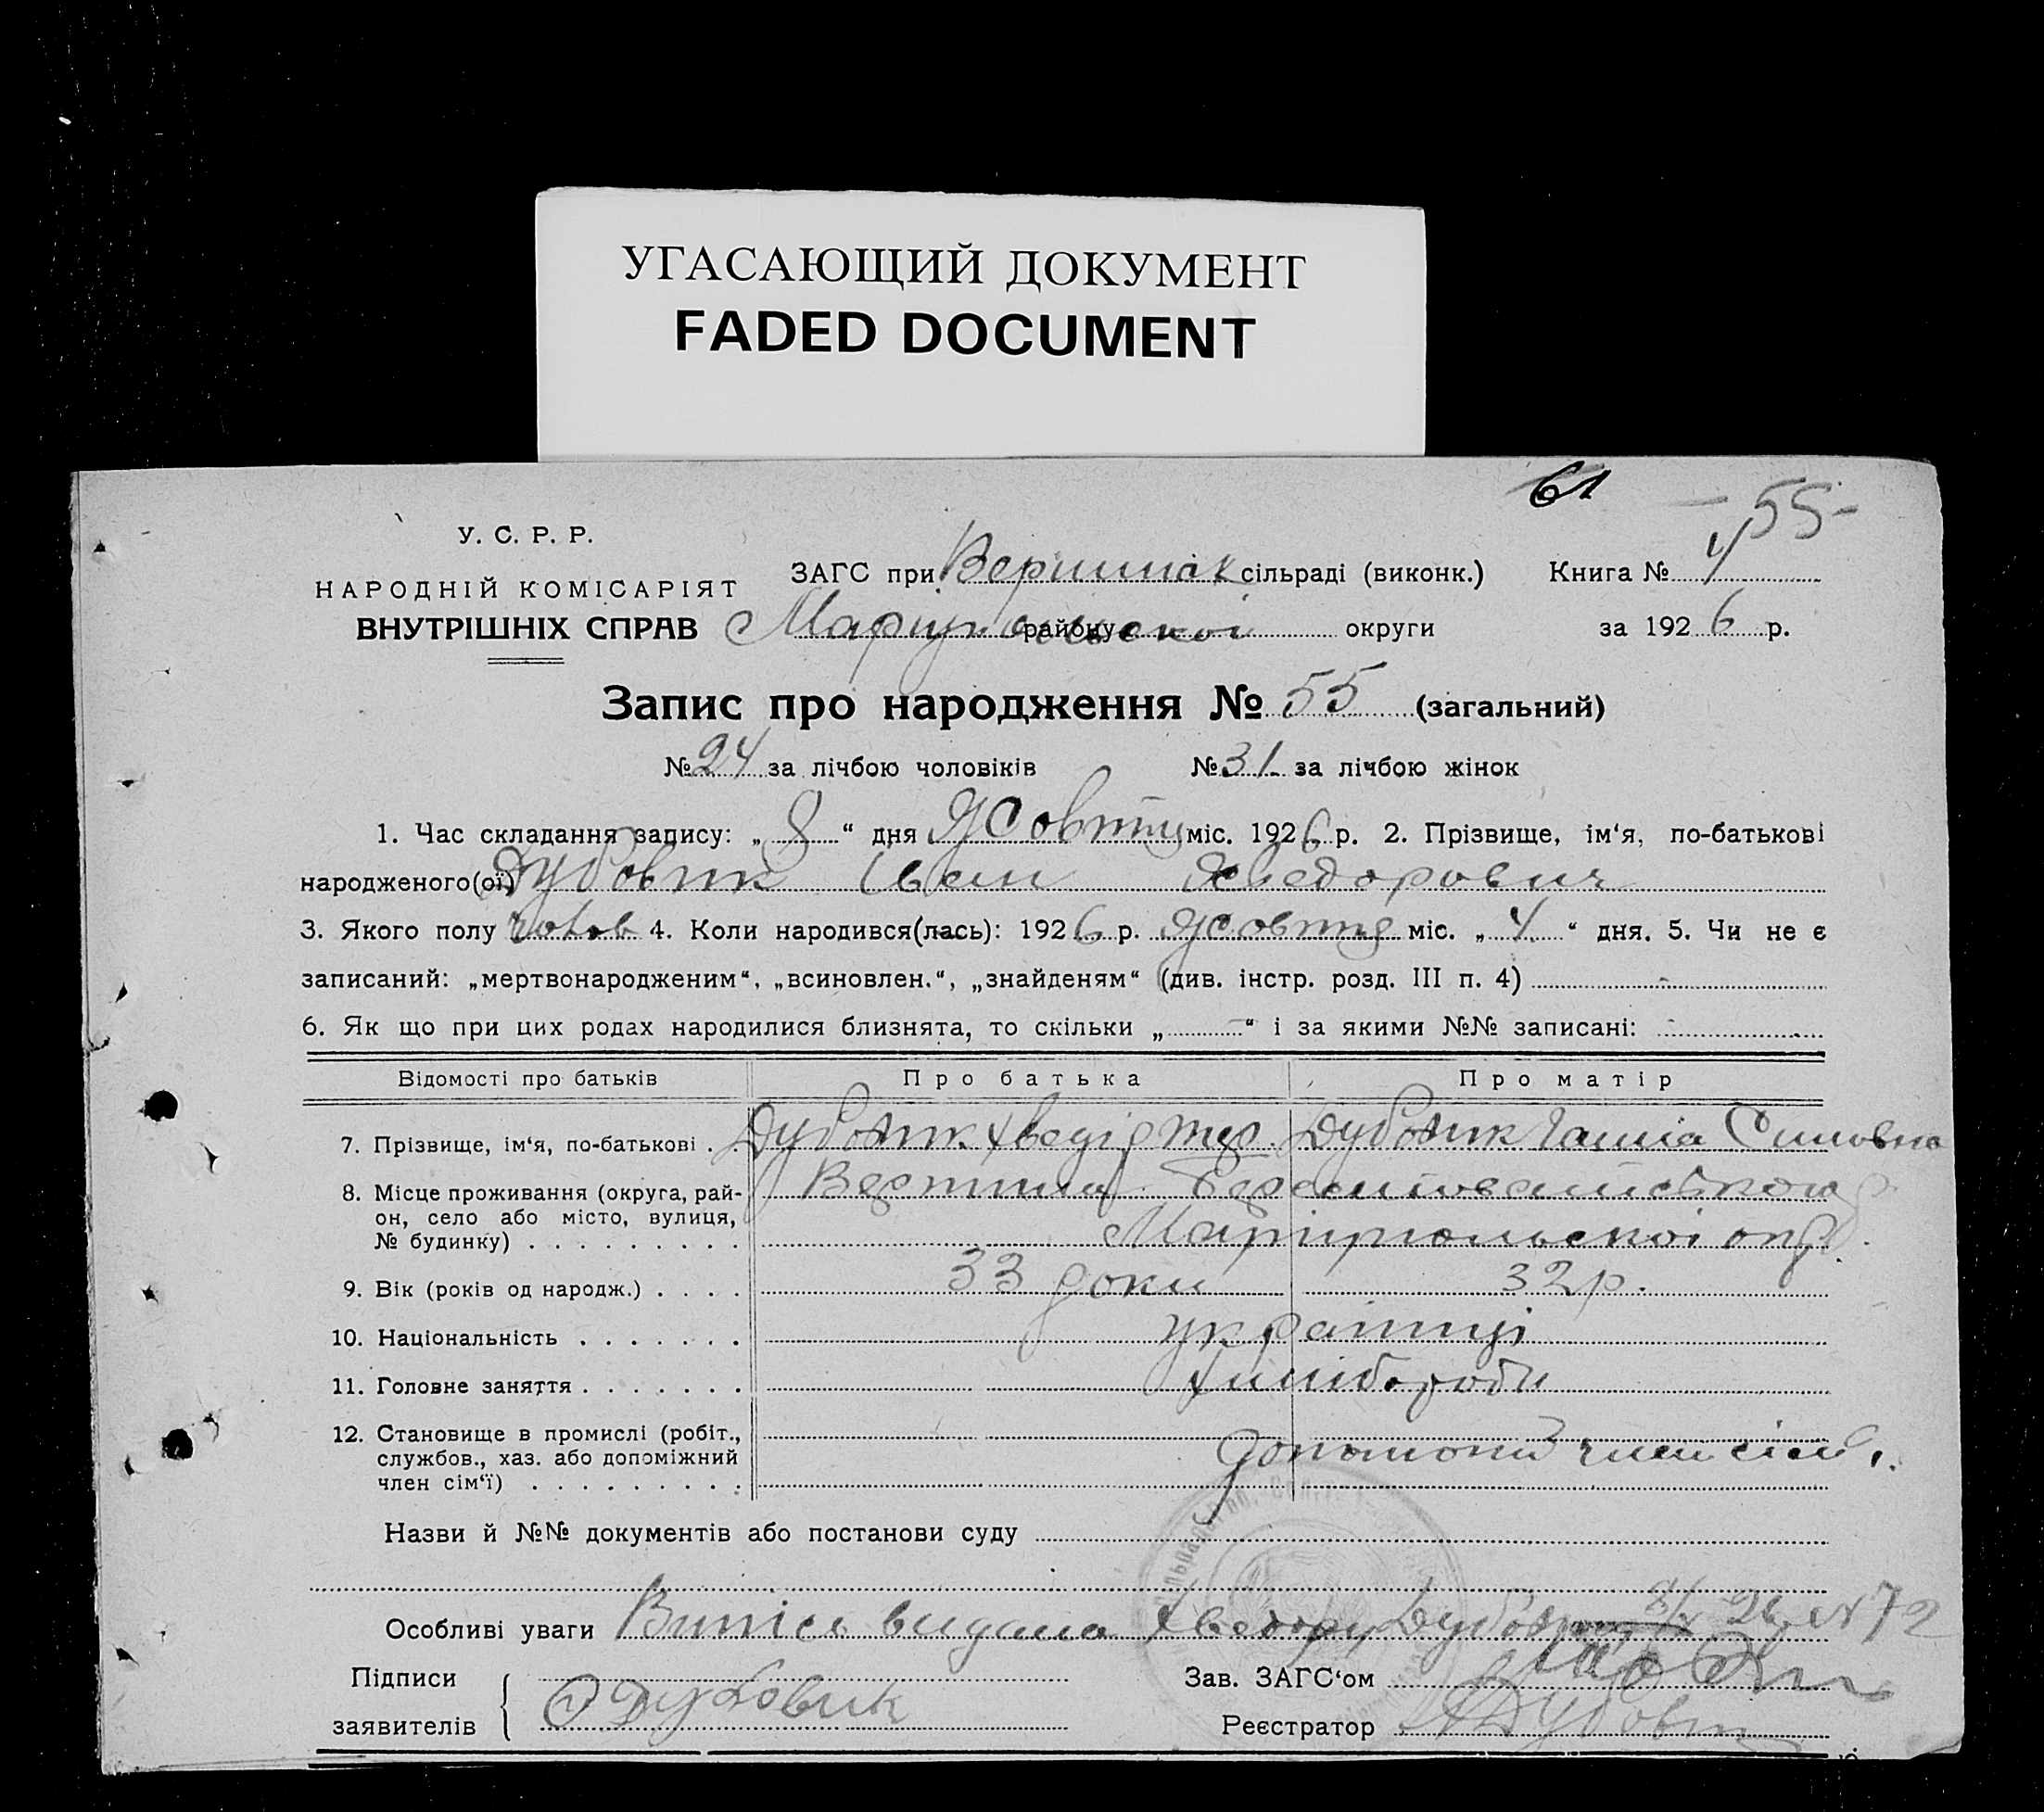 УГАСАЮЩИЙ ДОКУМЕНТ
FADED DOCUMENT
61 — 55 -
У. С. Р. Р.
НАРОДНІЙ КОМІСАРІЯТ
ВНУТРІШНІХ СПРАВ
ЗАГС при сільраді (виконк.) Книга № 4
Маріупольскої району округи за 1926 р.
Запис про народження № 55 (загальний)
№ 24 за лічбою чоловіків № 31 за лічбою жінок
1. Час складання запису: „ 8 “ дня Жовтня міс. 1926 р. 2. Прізвище, ім‘я, по-батькові
народженого(ої) Дубовик Іван Хведорович
3. Якого полу чолов 4. Коли народився(лась): 1926 р. Жовтня міс. „ 4 “ дня. 5. Чи не є
записаний: „мертвонародженим“, „всиновлен.“, „знайденям“ (див. інстр. розд. III п. 4) -
6. Як що при цих родах народилися близнята, то скільки „ - “ і за якими №№ записані: -
Відомості про батьків Про батька Про матір
7. Прізвище, ім‘я, по-батькові . . Дубовик Хведір Дубовик
8. Місце проживання (округа, рай-
он, село або місто, вулиця,
№ будинку) . . . . . . . . . Маріюпольскої окр.
9. Вік (років од народж.) . . . . 33 роки 32 р.
10. Національність . . . . . . . українці
11. Головне заняття . . . . . . . хлібороби
12. Становище в промислі (робіт.,
службов., хаз. або допоміжний
член сім‘ї) . . . . . . . . . член сім.
Назви й №№ документів або постанови суду
Особливі уваги Випись видана Хведору 26 N 72
Підписи
заявителів Дубовик
Зав. ЗАГС‘ом
Реєстратор